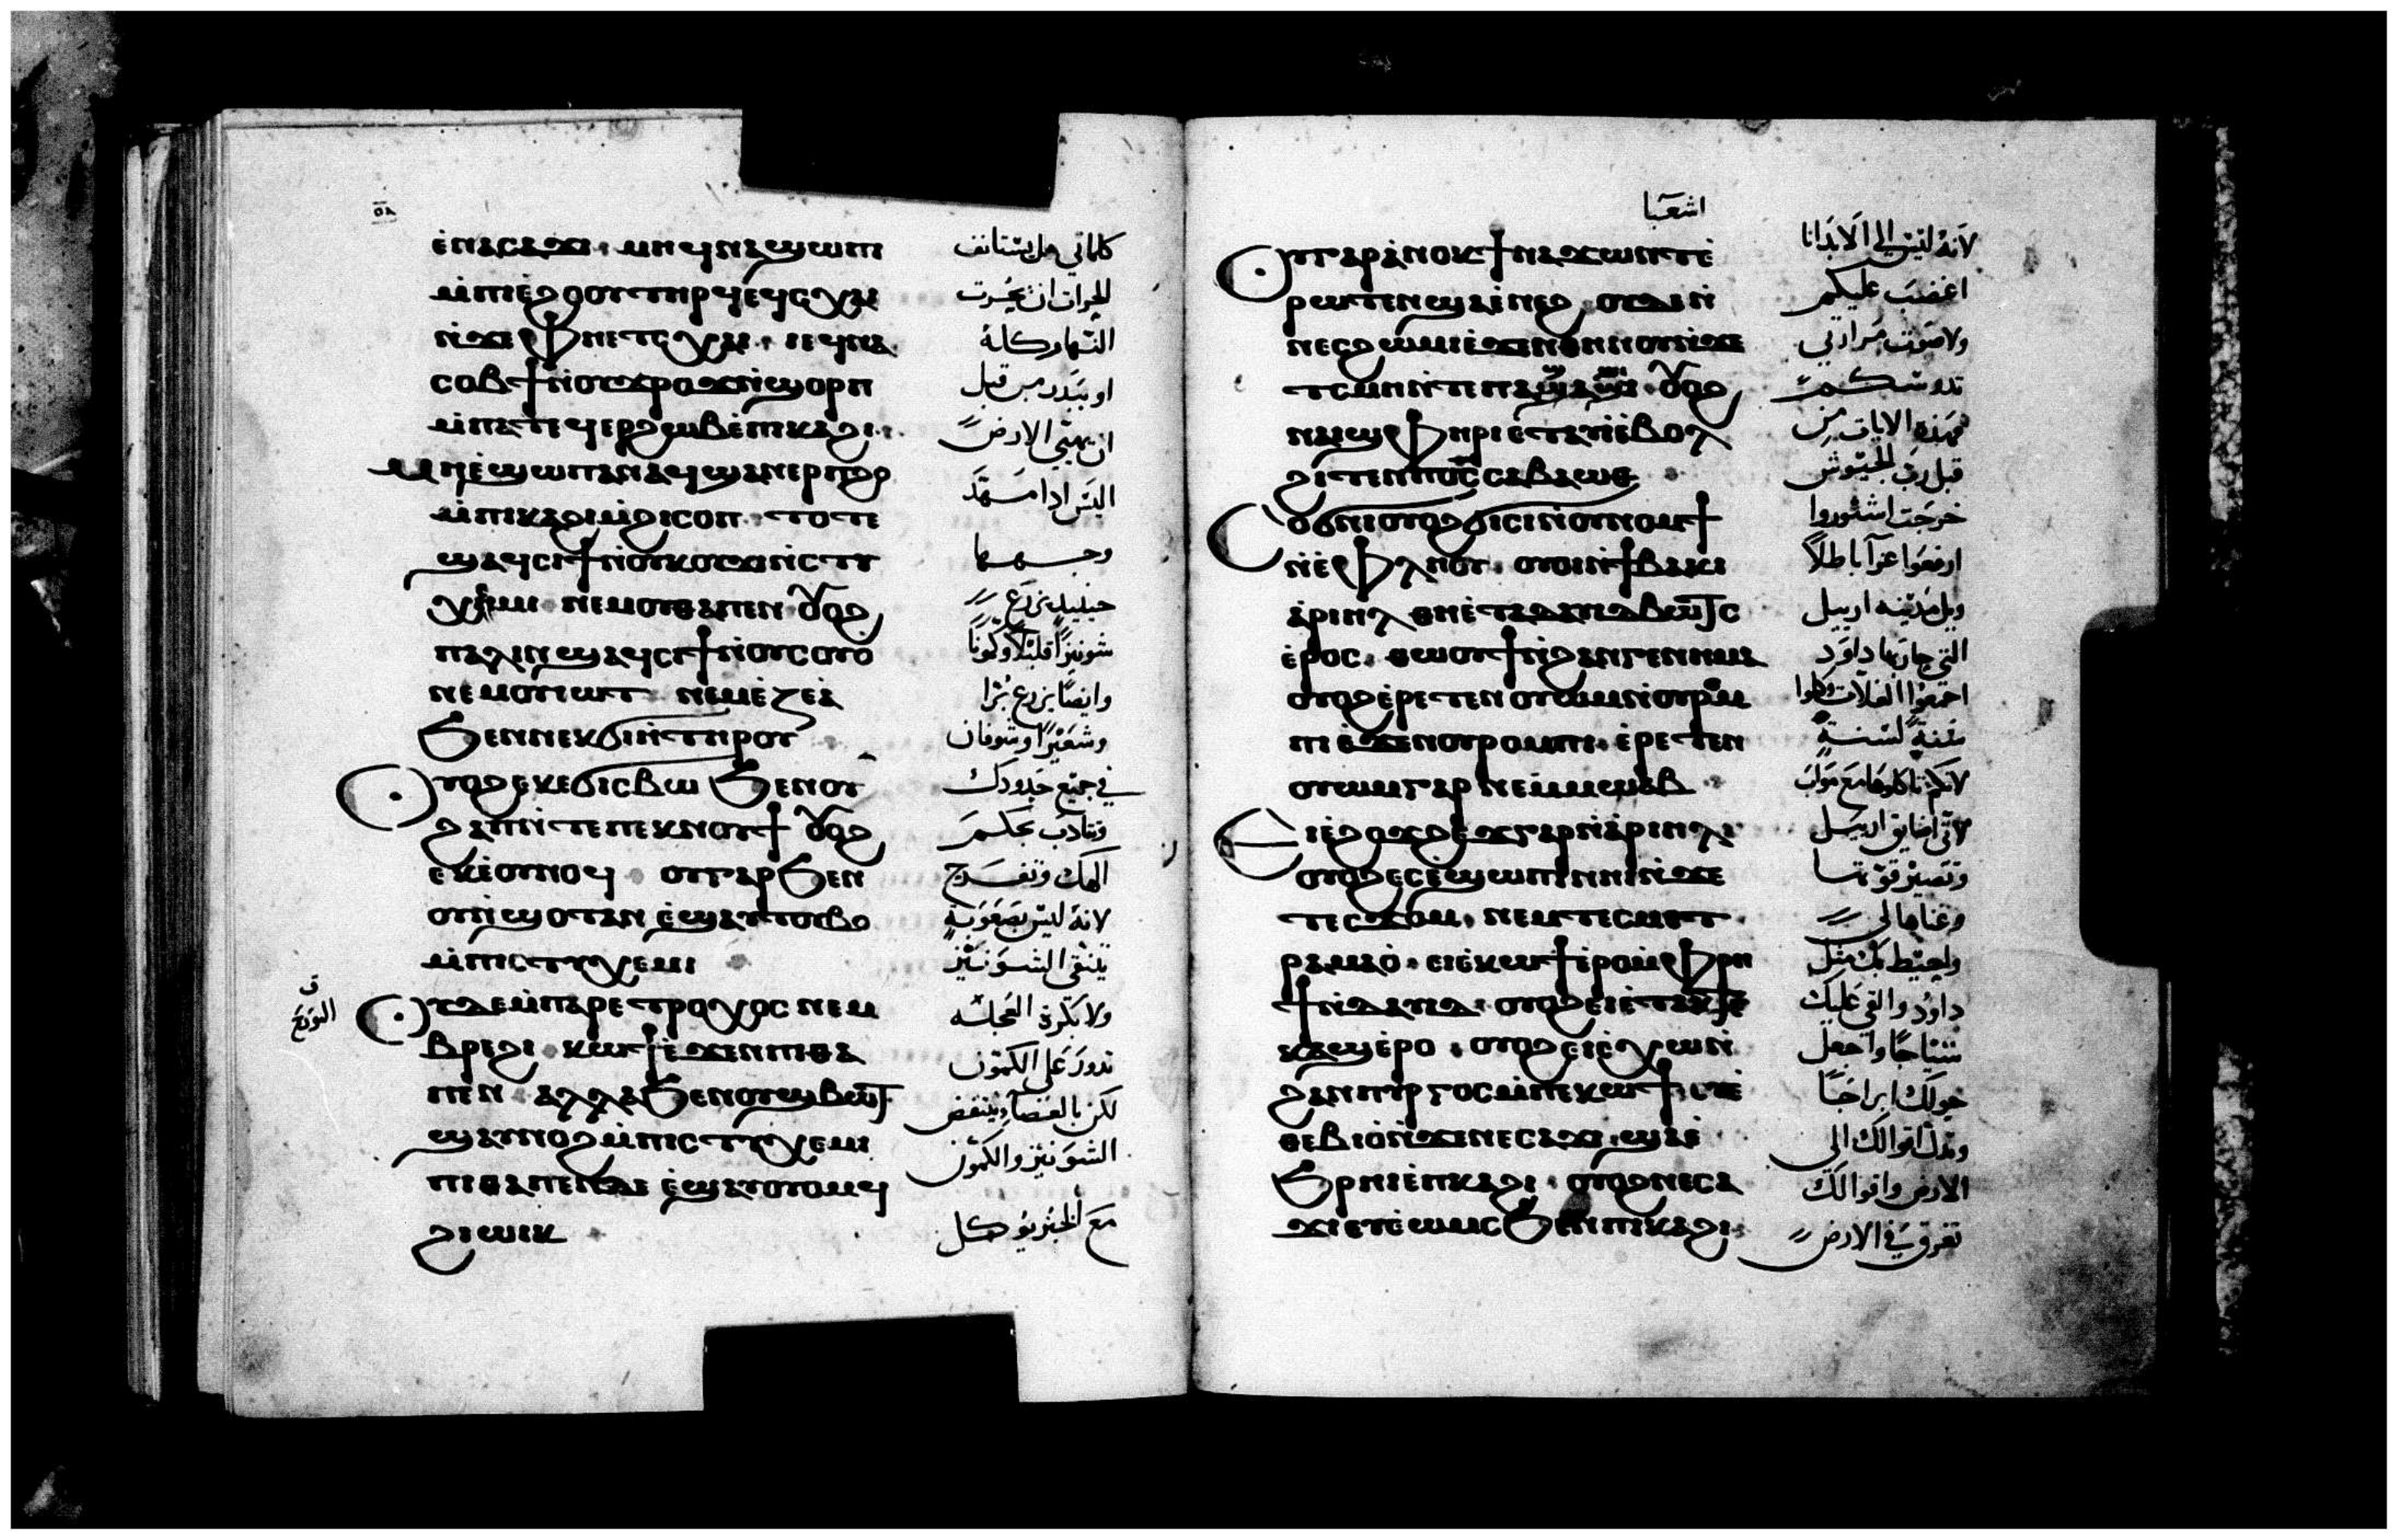 ⲟⲗ
ⲉ̀ⲛⲁⲥⲁϫⲓ . ⲙⲏϥⲛⲁϣⲱⲡ
ⲙ̀ⲡⲓⲉ̀ϩⲟⲟⲩⲧⲏⲣϥⲉϥⲥⲭⲁⲓ
ⲛ̀ϫⲉⲫⲏⲉⲧⲥⲭⲁⲓ . ⲓⲉϥⲛⲁ
ⲥⲟⲃϯⲛ̀ⲟⲩϫⲣⲟϫⲛ̀ϣⲟⲣⲡ
ⲙ̀ⲡⲁⲧⲉϥⲉⲣϩⲱⲃⲉ̀ⲡⲓⲕⲁϩⲓ .
ⲙⲏⲉ̀ϣⲱⲡⲁⲛⲁϥϣⲁⲛⲉⲣⲡϩⲟ
ⲙ̀ⲡⲓⲕⲁϩⲓⲛ̀ϩⲓⲥⲟⲡ . ⲧⲟⲧⲉ
ϣⲁϥⲥⲓϯⲛ̀ⲟⲩⲕⲟⲩϫⲓⲛ̀ⲥⲧⲩ
ⲭⲏⲙⲓ ⲛⲉⲙⲟⲩⲑⲁⲡⲉⲛ ⲟⲩⲟϩ
ⲡⲁⲗⲓⲛϣⲁϥⲥⲓϯⲛ̀ⲟⲩⲥⲟⲩⲟ
ⲛⲉⲙⲟⲩⲓⲱⲧ ⲛⲉⲙⲉ̀ⲍⲉⲁ̀
ϧⲉⲛⲛⲉⲕϭⲓⲏ̀ⲧⲏⲣⲟⲩ
ⲟⲩⲟϩⲉⲕⲉϭⲓⲥⲃⲱ ϧⲉⲛⲟⲩ
ϩⲁⲡⲛ̀ⲧⲉⲡⲉⲕⲛⲟⲩϯ ⲟⲩⲟϩ
ⲉⲕⲉ̀ⲟⲩⲛⲟϥ ⲟⲩⲅⲁⲣϧⲉⲛ
ⲟⲩⲛ̀ϣⲟⲧⲁⲛ ⲉ̀ϣⲁⲩⲧⲟⲩⲃⲟ
ⲙ̀ⲡⲓⲥⲧⲩⲭⲉⲙⲓ
ⲟⲩⲇⲉⲙ̀ⲡⲁⲣⲉⲧⲣⲟⲭⲟⲥ ⲛⲉⲙ
ⲃⲣⲉϩⲓ . ⲕⲱϯⲉ̀ϫⲉⲛⲡⲓⲑⲁ
ⲡⲉⲛ ⲁⲗⲗⲁϧⲉⲛⲟⲩϣⲃⲱϯ
ϣⲁⲩⲛⲟϩⲙ̀ⲡⲓⲥⲧⲩⲭⲉⲙⲓ
ⲡⲓⲑⲁⲡⲉⲛⲇⲉ ⲉ̀ϣⲁⲩⲟⲩⲟⲙϥ
ϩⲓⲱⲓⲕ
كلماتي هل يستانف
للحراث ان يحرث
النهار كله
او يبدر من قبل
ان يهيي الارض
اليس ادا مهد
وجهها
حينيد يزرع
شونيزا قليلا وكمونا
وايضا يزرع برا
وشعيرا وشوفان
في جميع حدودك
وتتادب بحكم
الهك وتفرح
لانه ليس بصعوبة
يتنقى الشونيز
ولا بكرة العجله
تدور على الكمون
لكن بالعصا ينتفض
الشونيز والكمون
مع الخبز يوكل
اشعيا
ⲟⲩⲅⲁⲣⲁ̀ⲛⲟⲕϯⲛⲁϫⲱⲛⲧⲉ̀
ⲣⲱⲧⲉⲛϣⲁⲉ̀ⲛⲉϩ . ⲟⲩⲇⲉⲛ̀
ⲛⲉⲥϩⲱⲙⲓⲉ̀ϫⲉⲛⲑⲏⲛⲟⲩⲛ̀ϫⲉ
ⲧⲥⲙⲏⲛ̀ⲧⲉⲡⲁϣⲁϣⲓ . ⲟⲩⲟϩ
ⲛⲁⲓϣⲫⲏⲣⲓⲉⲧⲁⲩⲓ̀ⲉ̀ⲃⲟⲗ
ϩⲓⲧⲉⲛⲡⲟ̅ⲥ̅ⲥⲁⲃⲁⲱⲑ .
ⲥⲟϭⲛⲓⲟⲩⲟϩϭⲓⲥⲓⲛ̀ⲟⲩⲛⲟⲙϯ
ⲛ̀ⲉ̀ⲫⲗⲏⲟⲩ . ⲟⲩⲟⲓⲛ̀ϯⲃⲁⲕⲓ
ⲁ̀ⲣⲓⲏⲗ ⲑⲏⲉ̀ⲧⲁⲇⲁⲩⲓⲇⲃⲱⲧⲥ
ⲉ̀ⲣⲟⲥ . ⲑⲱⲟⲩϯⲛ̀ϩⲁⲛⲅⲉⲛⲛⲏⲙⲁ
ⲟⲩⲟϩⲉ̀ⲣⲉⲧⲉⲛⲟⲩⲱⲙⲛ̀ⲟⲩⲣⲟⲙ
ⲡⲓⲉ̀ϫⲉⲛⲟⲩⲣⲟⲙⲡⲓ . ⲉ̀ⲣⲉⲧⲉⲛ
ⲟⲩⲱⲙⲅⲁⲣⲛⲉⲙⲙⲱⲁⲃ
ⲉⲓⲉ̀ϩⲟϫϩⲉϫⲅⲁⲣⲛ̀ⲁ̀ⲣⲓⲏⲗ .
ⲟⲩⲟϩⲉⲥⲉ̀ϣⲱⲡⲓⲛⲏⲓⲛ̀ϫⲉ
ⲧⲉⲥϫⲟⲙ . ⲛⲉⲙⲧⲉⲥⲙⲉⲧ
ⲣⲁⲙⲁⲟ̀ . ⲉⲓⲉ̀ⲕⲱϯⲉ̀ⲣⲟⲙ̀ⲫⲣⲏ
ϯⲛ̀ⲇⲁⲩⲓⲇ . ⲟⲩⲟϩⲉⲓⲉ̀ⲧⲁⲕⲧⲉ
ⲕⲁϣⲉ̀ⲣⲟ . ⲟⲩⲟϩⲉⲓⲉ̀ⲭⲱⲛ̀
ϩⲁⲛⲡⲩⲣⲅⲟⲥⲙ̀ⲡⲉⲕⲱϯ
ⲑⲉⲃⲓⲟ̀ⲛ̀ϫⲉⲛⲉⲥⲁϫⲓ . ϣⲁⲉ̀
ϧⲣⲏⲓⲉ̀ⲡⲕⲁϩⲓ . ⲟⲩⲟϩⲛⲉⲥⲁ
ϫⲓⲉⲩⲉ̀ⲱⲙⲥϧⲉⲛⲡⲓⲕⲁϩⲓ .
لانه ليس الى الابد انا
اغضب عليكم
ولا صوت مرارتي
تدوسكم
فهذه الايات من
قبل رب الجيوش
خرجت اشتوروا
ارفعوا عزآ باطلا
ويل مدينه ارييل
التي حاربها داوود
اجمعوا الغلات وكلوا
سنة لسنة
لانكم تاكلوها مع مواب
لاني اضايق ارييل
وتصير قوتها
وغناها لي
واحيط بك مثل
داود والقى عليك
سياجا واجعل
حولك ابراجا
وتدل اقوالك الى
الارض واقوالك
تغرق في الارض